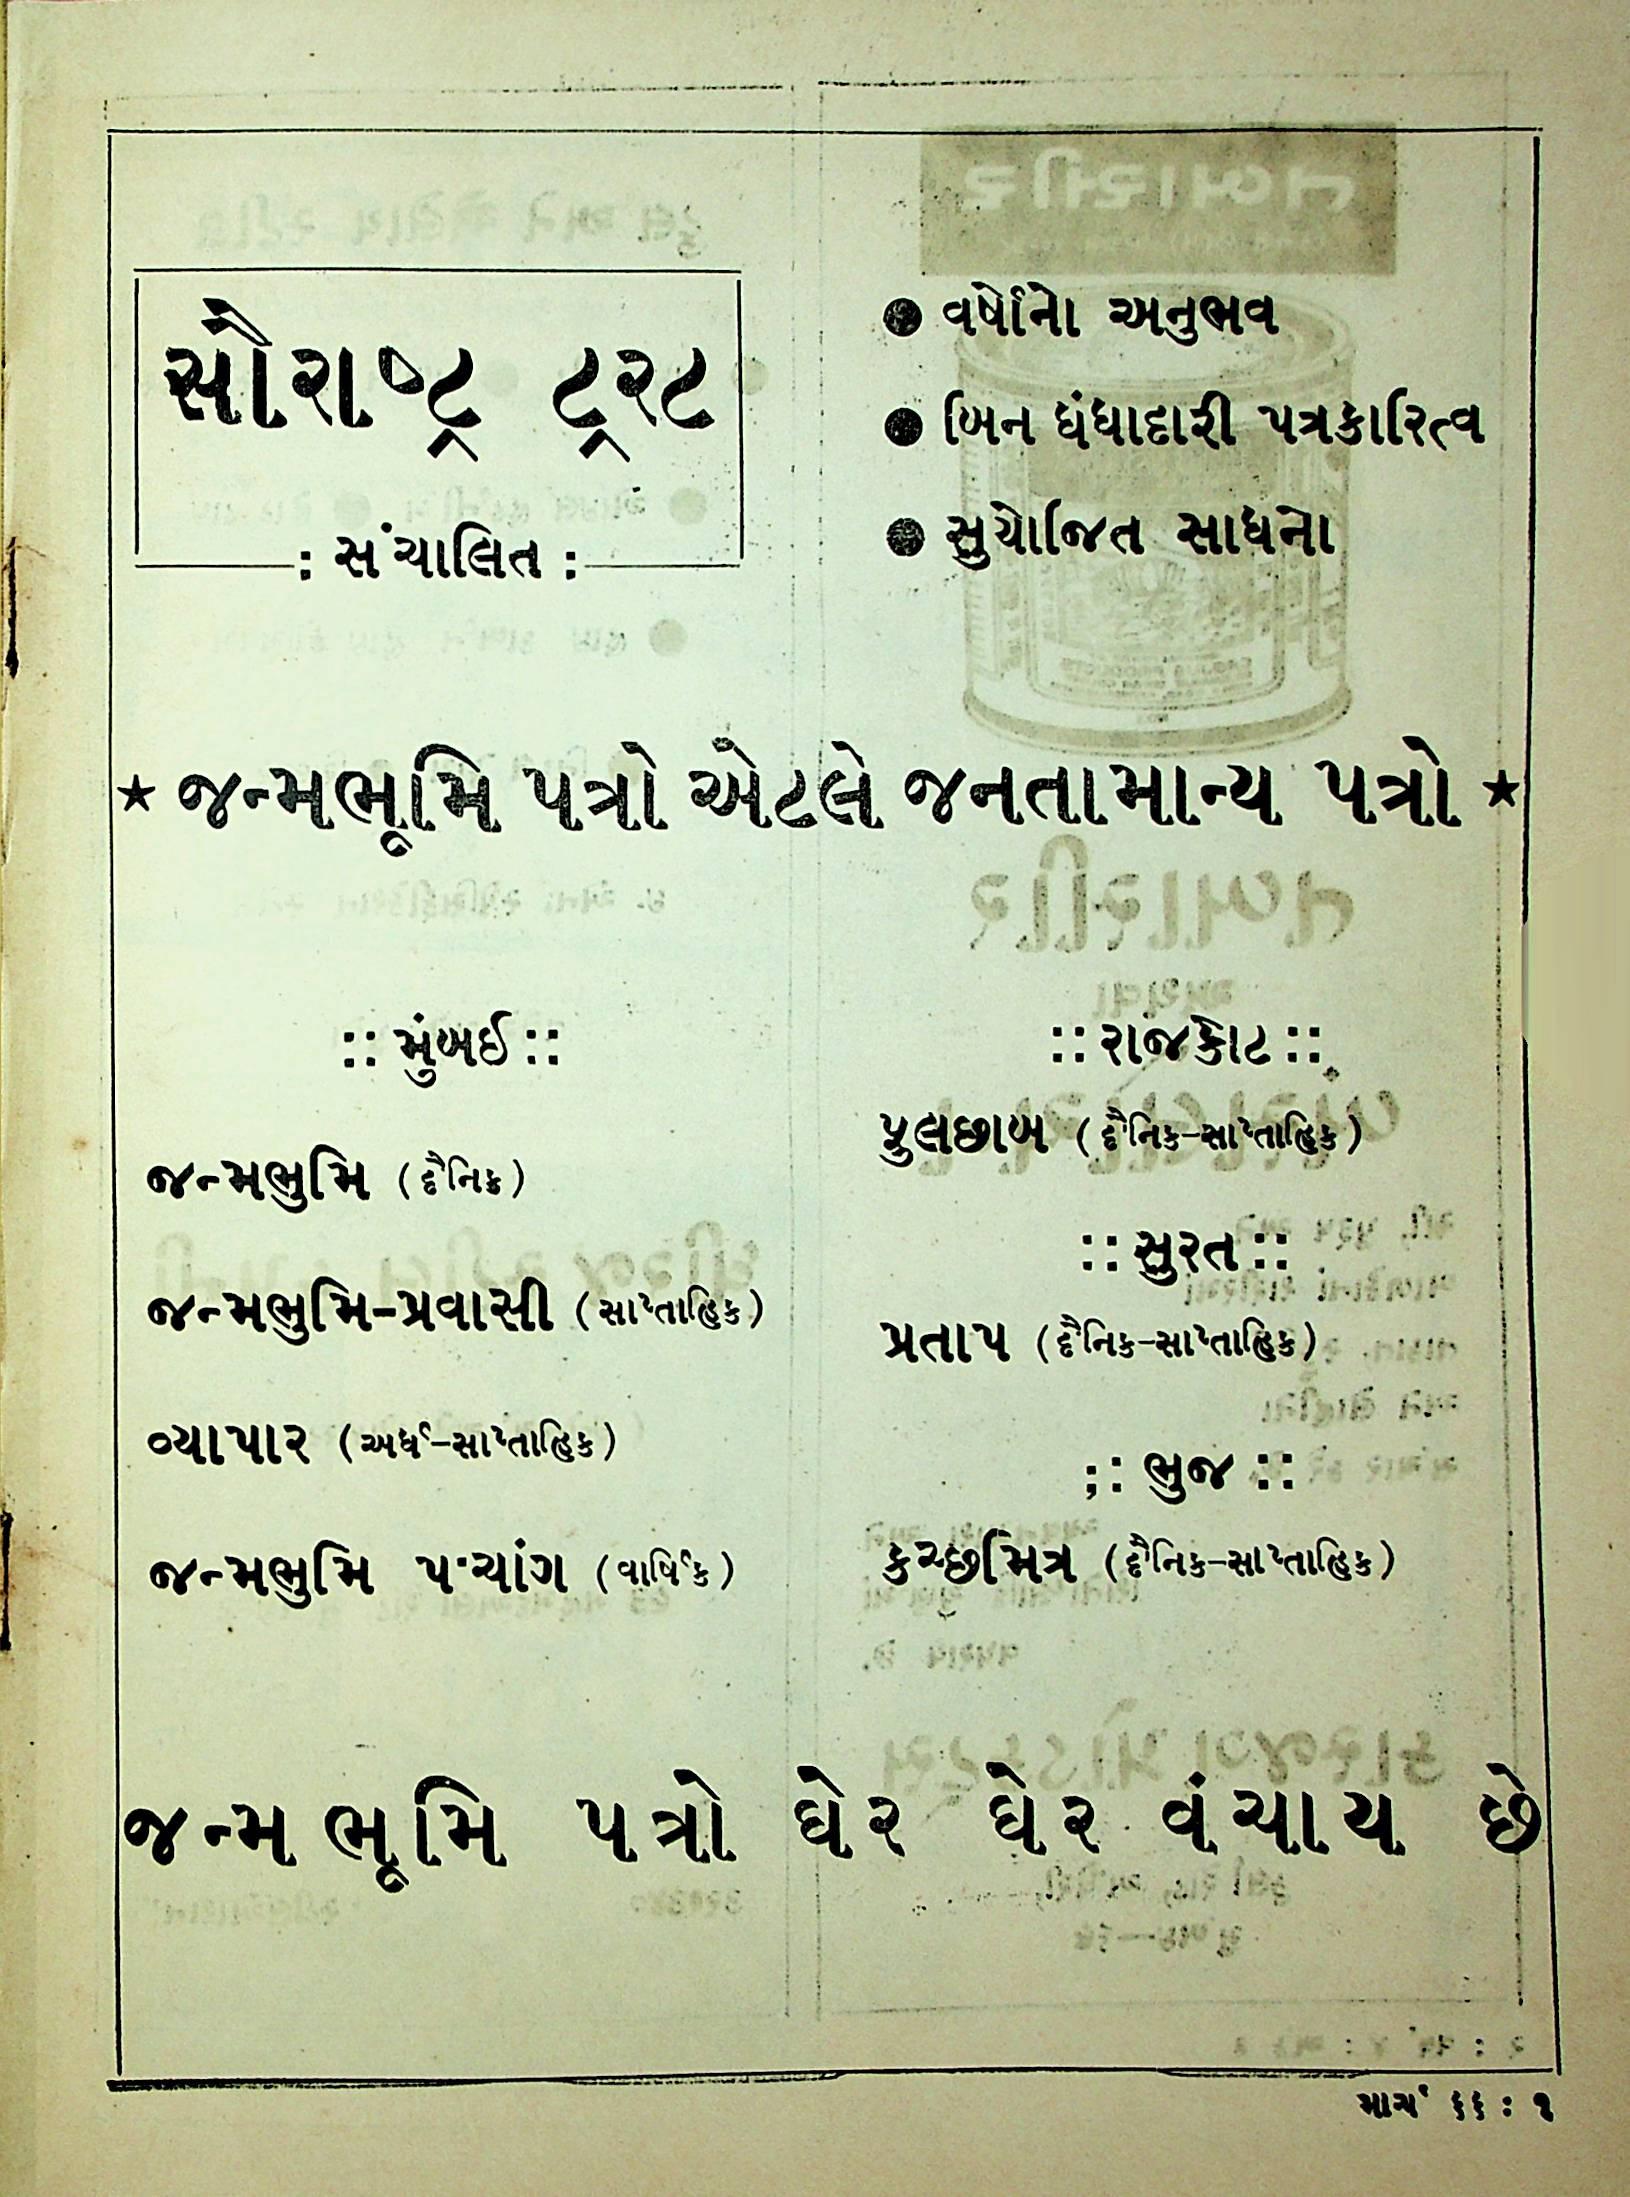 સૌરાષ્ટ્ર ટ્રસ્ટ
: સંચાલિત :
● વર્ષોનો અનુભવ
● બિન ધંધાદારી પત્રકારિત્વ
● સુયોજિત સાધનો
★ જન્મભૂમિ પત્રો એટલે જનતામાન્ય પત્રો ★
:: મુંબઈ ::
જન્મભુમિ (દૈનિક)
જન્મભુમિ-પ્રવાસી (સાપ્તાહિક)
વ્યાપાર (અર્ધ-સાપ્તાહિક)
જન્મભુમિ પંચાંગ (વાર્ષિક)
:: રાજકોટ ::
ફુલછાબ (દૈનિક-સાપ્તાહિક)
:: સુરત ::
પ્રતાપ (દૈનિક-સાપ્તાહિક)
;: ભુજ ::
કચ્છમિત્ર (દૈનિક-સાપ્તાહિક)
જન્મભૂમિ પત્રો ઘેર ઘેર વંચાય છે
માર્ચ ૬૬ : ૧